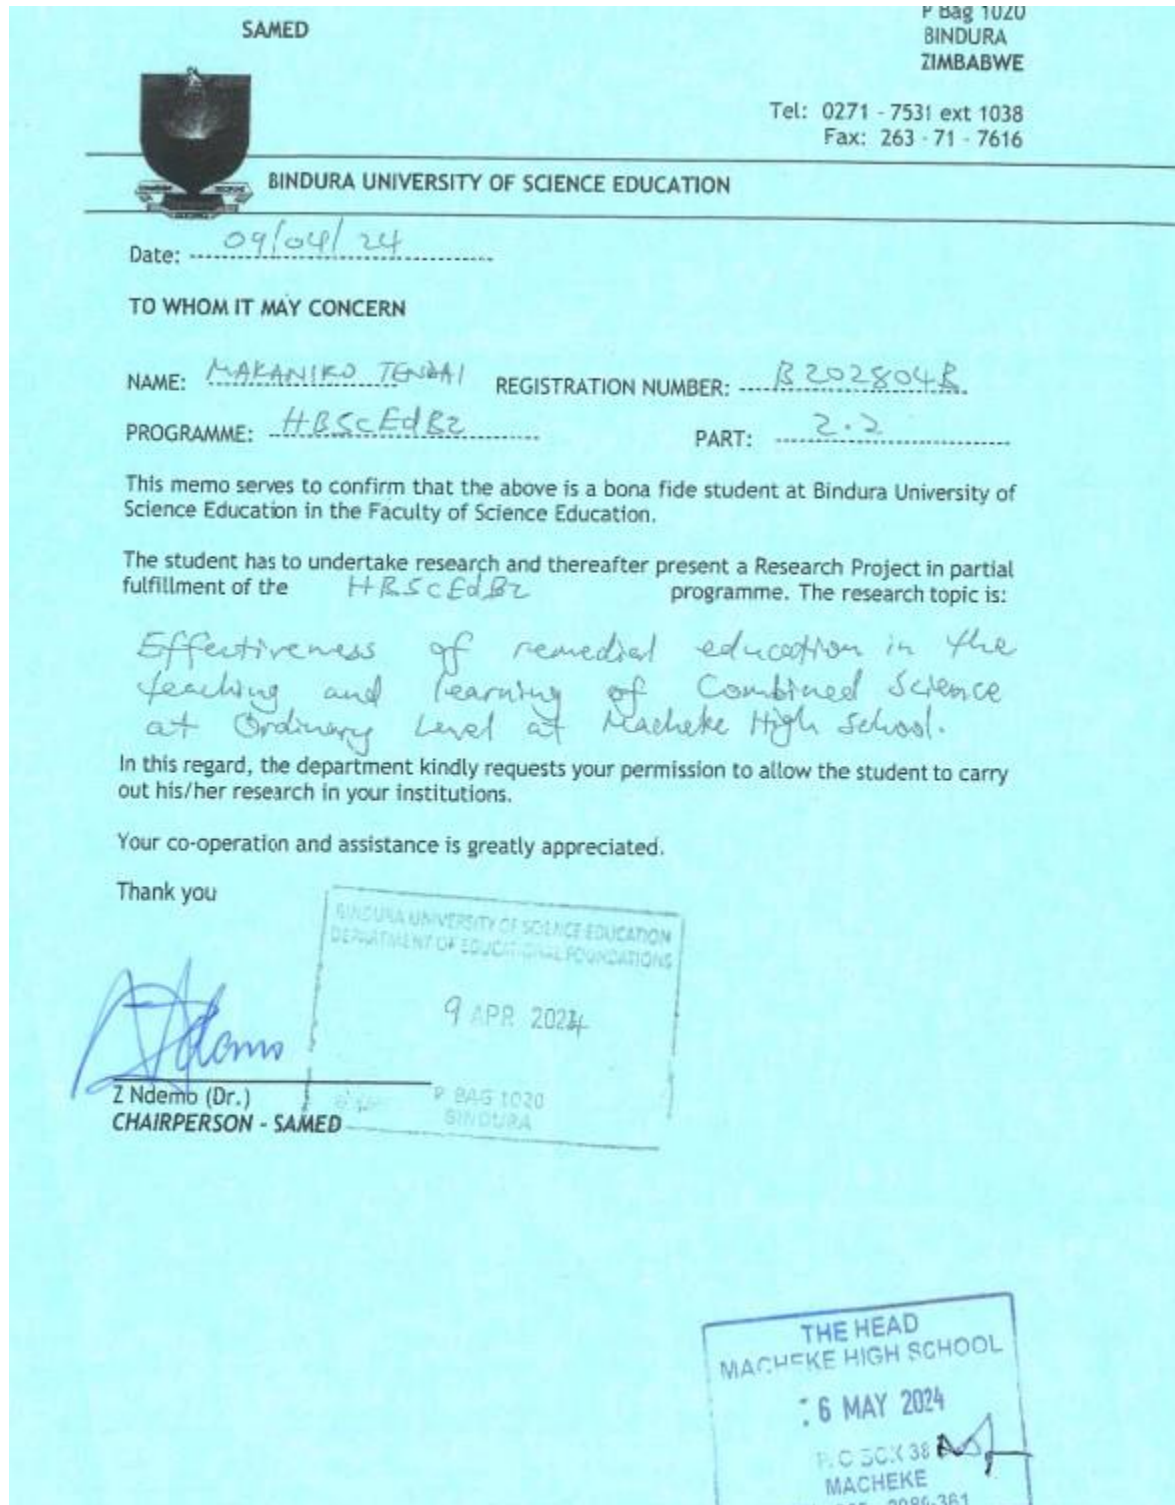 SAMED
P Bag 1020
BINDURA
ZIMBABWE
Tel: 0271 - 7531 ext 1038
Fax: 263 - 71 - 7616
BINDURA UNIVERSITY OF SCIENCE EDUCATION
Date: 09/04/24
TO WHOM IT MAY CONCERN
NAME: MAKANIKO TENDAI REGISTRATION NUMBER: B202804B
PROGRAMME: HBScEdBz PART: 2.2
This memo serves to confirm that the above is a bona fide student at Bindura University of
Science Education in the Faculty of Science Education.
The student has to undertake research and thereafter present a Research Project in partial
fulfillment of the HBScEdBz programme. The research topic is:
Effectiveness of remedial education in the
teaching and learning of Combined Science
at Ordinary Level at Macheke High School.
In this regard, the department kindly requests your permission to allow the student to carry
out his/her research in your institutions.
Your co-operation and assistance is greatly appreciated.
Thank you
BINDURA UNIVERSITY OF SCIENCE EDUCATION
DEPARTMENT OF EDUCATIONAL FOUNDATIONS
9 APR 2024
P BAG 1020
BINDURA
Z Ndemo (Dr.)
CHAIRPERSON - SAMED
THE HEAD
MACHEKE HIGH SCHOOL
6 MAY 2024
P.O BOX 38
MACHEKE